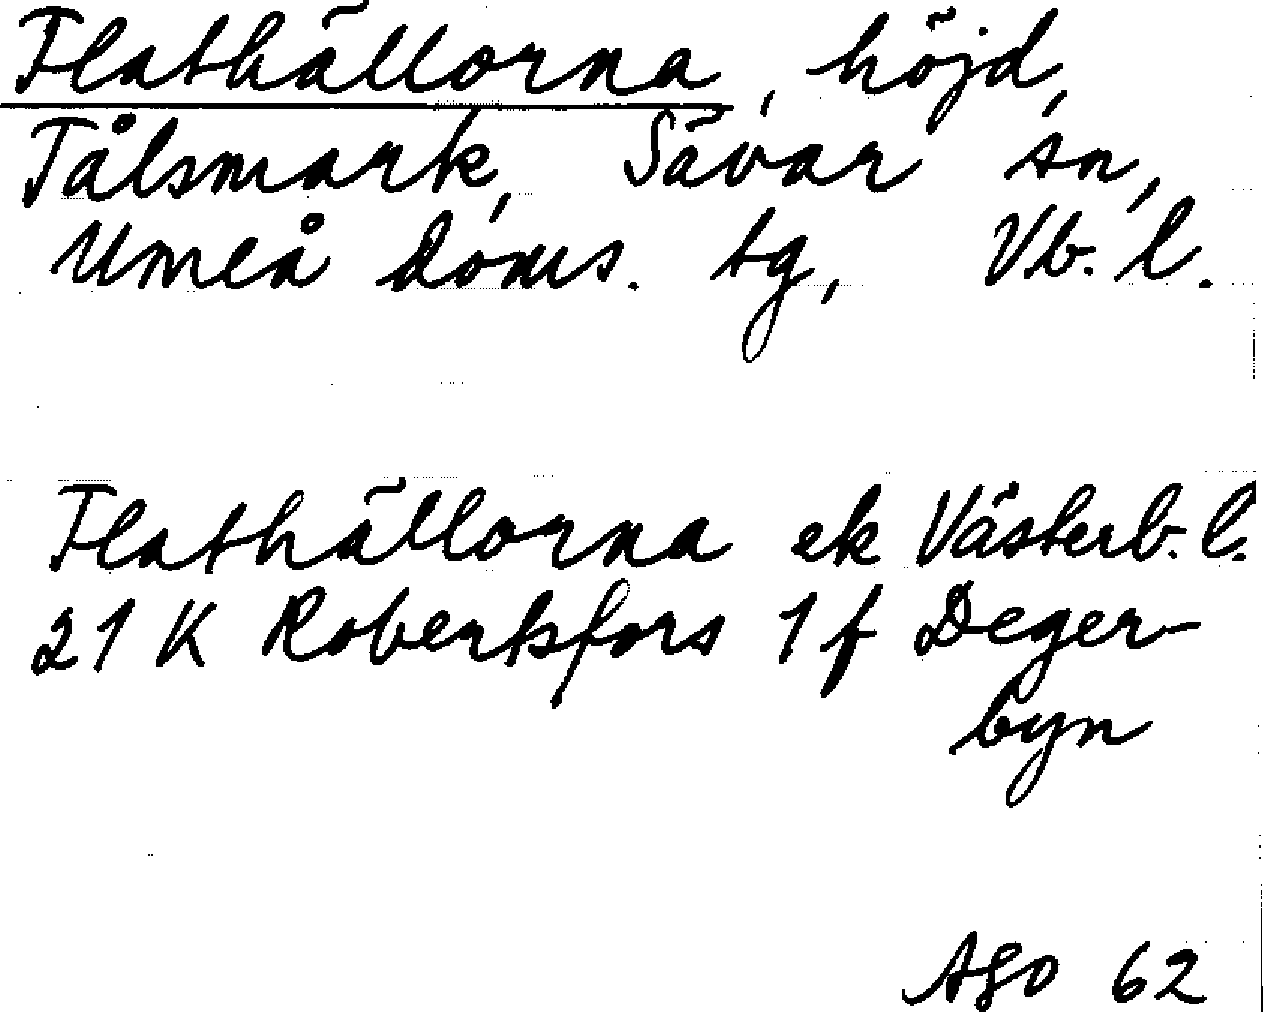 Flathällorna, höjd,
Tålsmark, Sävar sn,
Umeå doms. tg, Vb. l.
Flathällorna ek Västerb. l.
21 K Robertsfors 1 f Deger-
byn
AGO 62